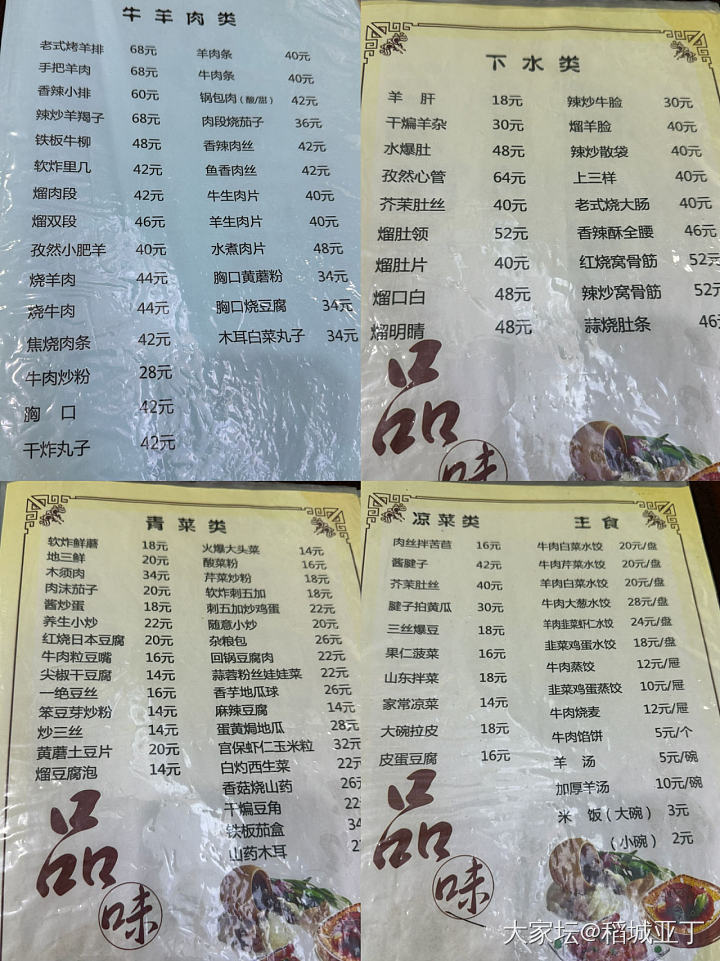 牛羊肉类
老式烤羊排 68元
手把羊肉 68元
香辣小排 60元
辣炒羊羯子 68元
铁板牛柳 48元
软炸里几 42元
熘肉段 42元
熘双段 46元
孜然小肥羊 40元
烧羊肉 44元
烧牛肉 44元
焦烧肉条 42元
牛肉炒粉 28元
胸 口 42元
干炸丸子 42元
羊肉条 40元
牛肉条 40元
锅包肉(酸/甜) 42元
肉段烧茄子 36元
香辣肉丝 42元
鱼香肉丝 42元
牛生肉片 40元
羊生肉片 40元
水煮肉片 48元
胸口黄蘑粉 34元
胸口烧豆腐 34元
木耳白菜丸子 34元
下水类
羊 肝 18元
干煸羊杂 30元
水爆肚 48元
孜然心管 64元
芥茉肚丝 40元
熘肚领 52元
熘肚片 40元
熘口白 48元
熘明睛 48元
辣炒牛脸 30元
熘羊脸 40元
辣炒散袋 40元
上三样 40元
老式烧大肠 40元
香辣酥全腰 46元
红烧窝骨筋 52元
辣炒窝骨筋 52元
蒜烧肚条 46
品
味
青菜类
软炸鲜蘑 18元
地三鲜 20元
木须肉 34元
肉沫茄子 20元
酱炒蛋 18元
养生小炒 22元
红烧日本豆腐 20元
牛肉粒豆嘴 16元
尖椒干豆腐 14元
一绝豆丝 16元
笨豆芽炒粉 14元
炒三丝 14元
黄蘑土豆片 20元
熘豆腐泡 14元
火爆大头菜 14元
酸菜粉 16元
芹菜炒粉 18元
软炸刺五加 18元
刺五加炒鸡蛋 22元
随意小炒 20元
杂粮包 26元
回锅豆腐肉 22元
蒜蓉粉丝娃娃菜 22元
香芋地瓜球 26元
麻辣豆腐 14元
蛋黄焗地瓜 28元
宫保虾仁玉米粒 32元
白灼西生菜 22元
香菇烧山药 26元
干煸豆角 22
铁板茄盒 34
山药木耳
品
味
凉菜类
肉丝拌苦苣 16元
酱腱子 42元
芥茉肚丝 40元
腱子拍黄瓜 30元
三丝爆豆 18元
果仁菠菜 16元
山东拌菜 18元
家常凉菜 14元
大碗拉皮 18元
皮蛋豆腐 16元
主食
牛肉白菜水饺 20元/盘
牛肉芹菜水饺 20元/盘
羊肉白菜水饺 20元/盘
牛肉大葱水饺 28元/盘
羊肉韭菜虾仁水饺 24元/盘
韭菜鸡蛋水饺 18元/盘
牛肉蒸饺 12元/屉
韭菜鸡蛋蒸饺 10元/屉
牛肉烧麦 12元/屉
牛肉馅饼 5元/个
羊 汤 5元/碗
加厚羊汤 10元/碗
米 饭(大碗) 3元
(小碗) 2元
品
味
大家坛@稻城亚丁